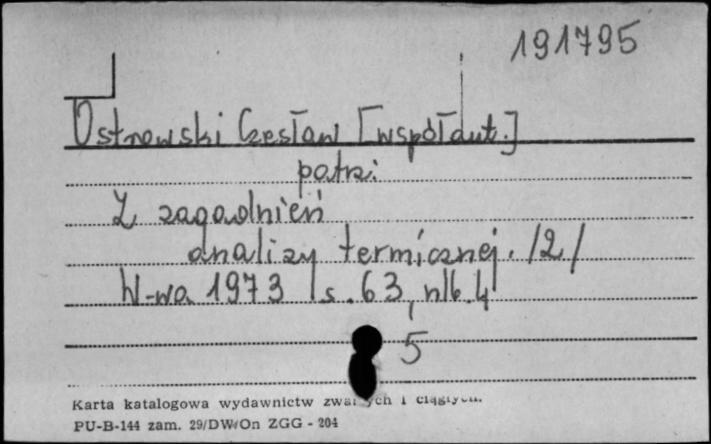 191795
Ostrowski Czesław [współaut.]
patrz:
Z zagadnień
analizy termicznej. /2/
W-wa 1973 s. 63, nlb. 4
5
Karta katalogowa wydawnictw zwartych i ciągłych.
PU-B-144 zam. 29/DW/On ZGG - 204